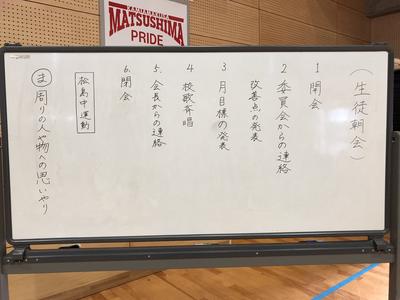 KAMIAMAKUSA
MATSUSHIMA
PRIDE
(生徒朝会)
1 開会
2 委員会からの連絡
改善点の発表
3 月目標の発表
4 校歌斉唱
5. 会長からの連絡
6. 閉会
松島中運動
ま 周りの人や物への思いやり